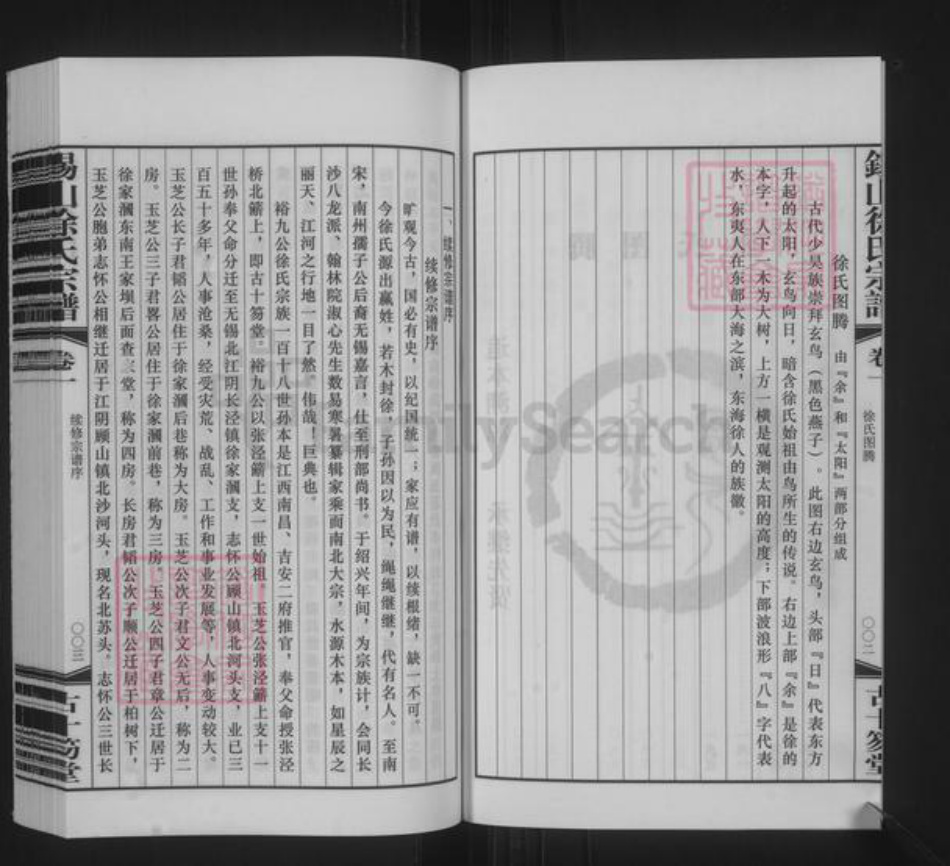 锡山徐氏宗谱
卷一
徐氏图腾
〇〇二
古十笏堂
徐氏图腾 由『余』和『太阳』两部分组成
古代少昊族崇拜玄鸟（黑色燕子）。此图右边玄鸟，头部『日』代表东方
升起的太阳，玄鸟向日，暗含徐氏始祖由鸟所生的传说。右边上部『余』是徐的
本字，人下一木为大树，上方一横是观测太阳的高度；下部波浪形『八』字代表
水，东夷人在东部大海之滨，东海徐人的族徽。
一、续修宗谱序
续修宗谱序
旷观今古，国必有史，以纪国统一；家应有谱，以续根绪，缺一不可。
今徐氏源出嬴姓，若木封徐，子孙因以为民，绳绳继继，代有名人。至南
宋，南州孺子公后裔无锡嘉言，仕至刑部尚书。于绍兴年间，为宗族计，会同长
沙八龙派、翰林院淑心先生数易寒暑纂辑家乘而南北大宗，水源木本，如星辰之
丽天、江河之行地一目了然。伟哉！巨典也。
裕九公徐氏宗族一百十八世孙本是江西南昌、吉安二府推官，奉父命授张泾
桥北簖上，即古十笏堂。裕九公以张泾簖上支一世始祖，玉芝公张泾簖上支十一
世孙奉父命分迁至无锡北江阴长泾镇徐家㵎支，志怀公顾山镇北河头支，业已三
百五十多年，人事沧桑，经受灾荒、战乱、工作和事业发展等，人事变动较大。
玉芝公长子君韬公居住于徐家㵎后巷称为大房。玉芝公次子君文公无后，称为二
房。玉芝公三子君畧公居住于徐家㵎前巷，称为三房。玉芝公四子君章公迁居于
徐家㵎东南王家坝后面查三堂，称为四房。长房君韬公次子顺公迁居于柏树下，
玉芝公胞弟志怀公相继迁居于江阴顾山镇北沙河头，现名北苏头。志怀公三世长
锡山徐氏宗谱
卷一
续修宗谱序
〇〇三
古十笏堂
FamilySearch